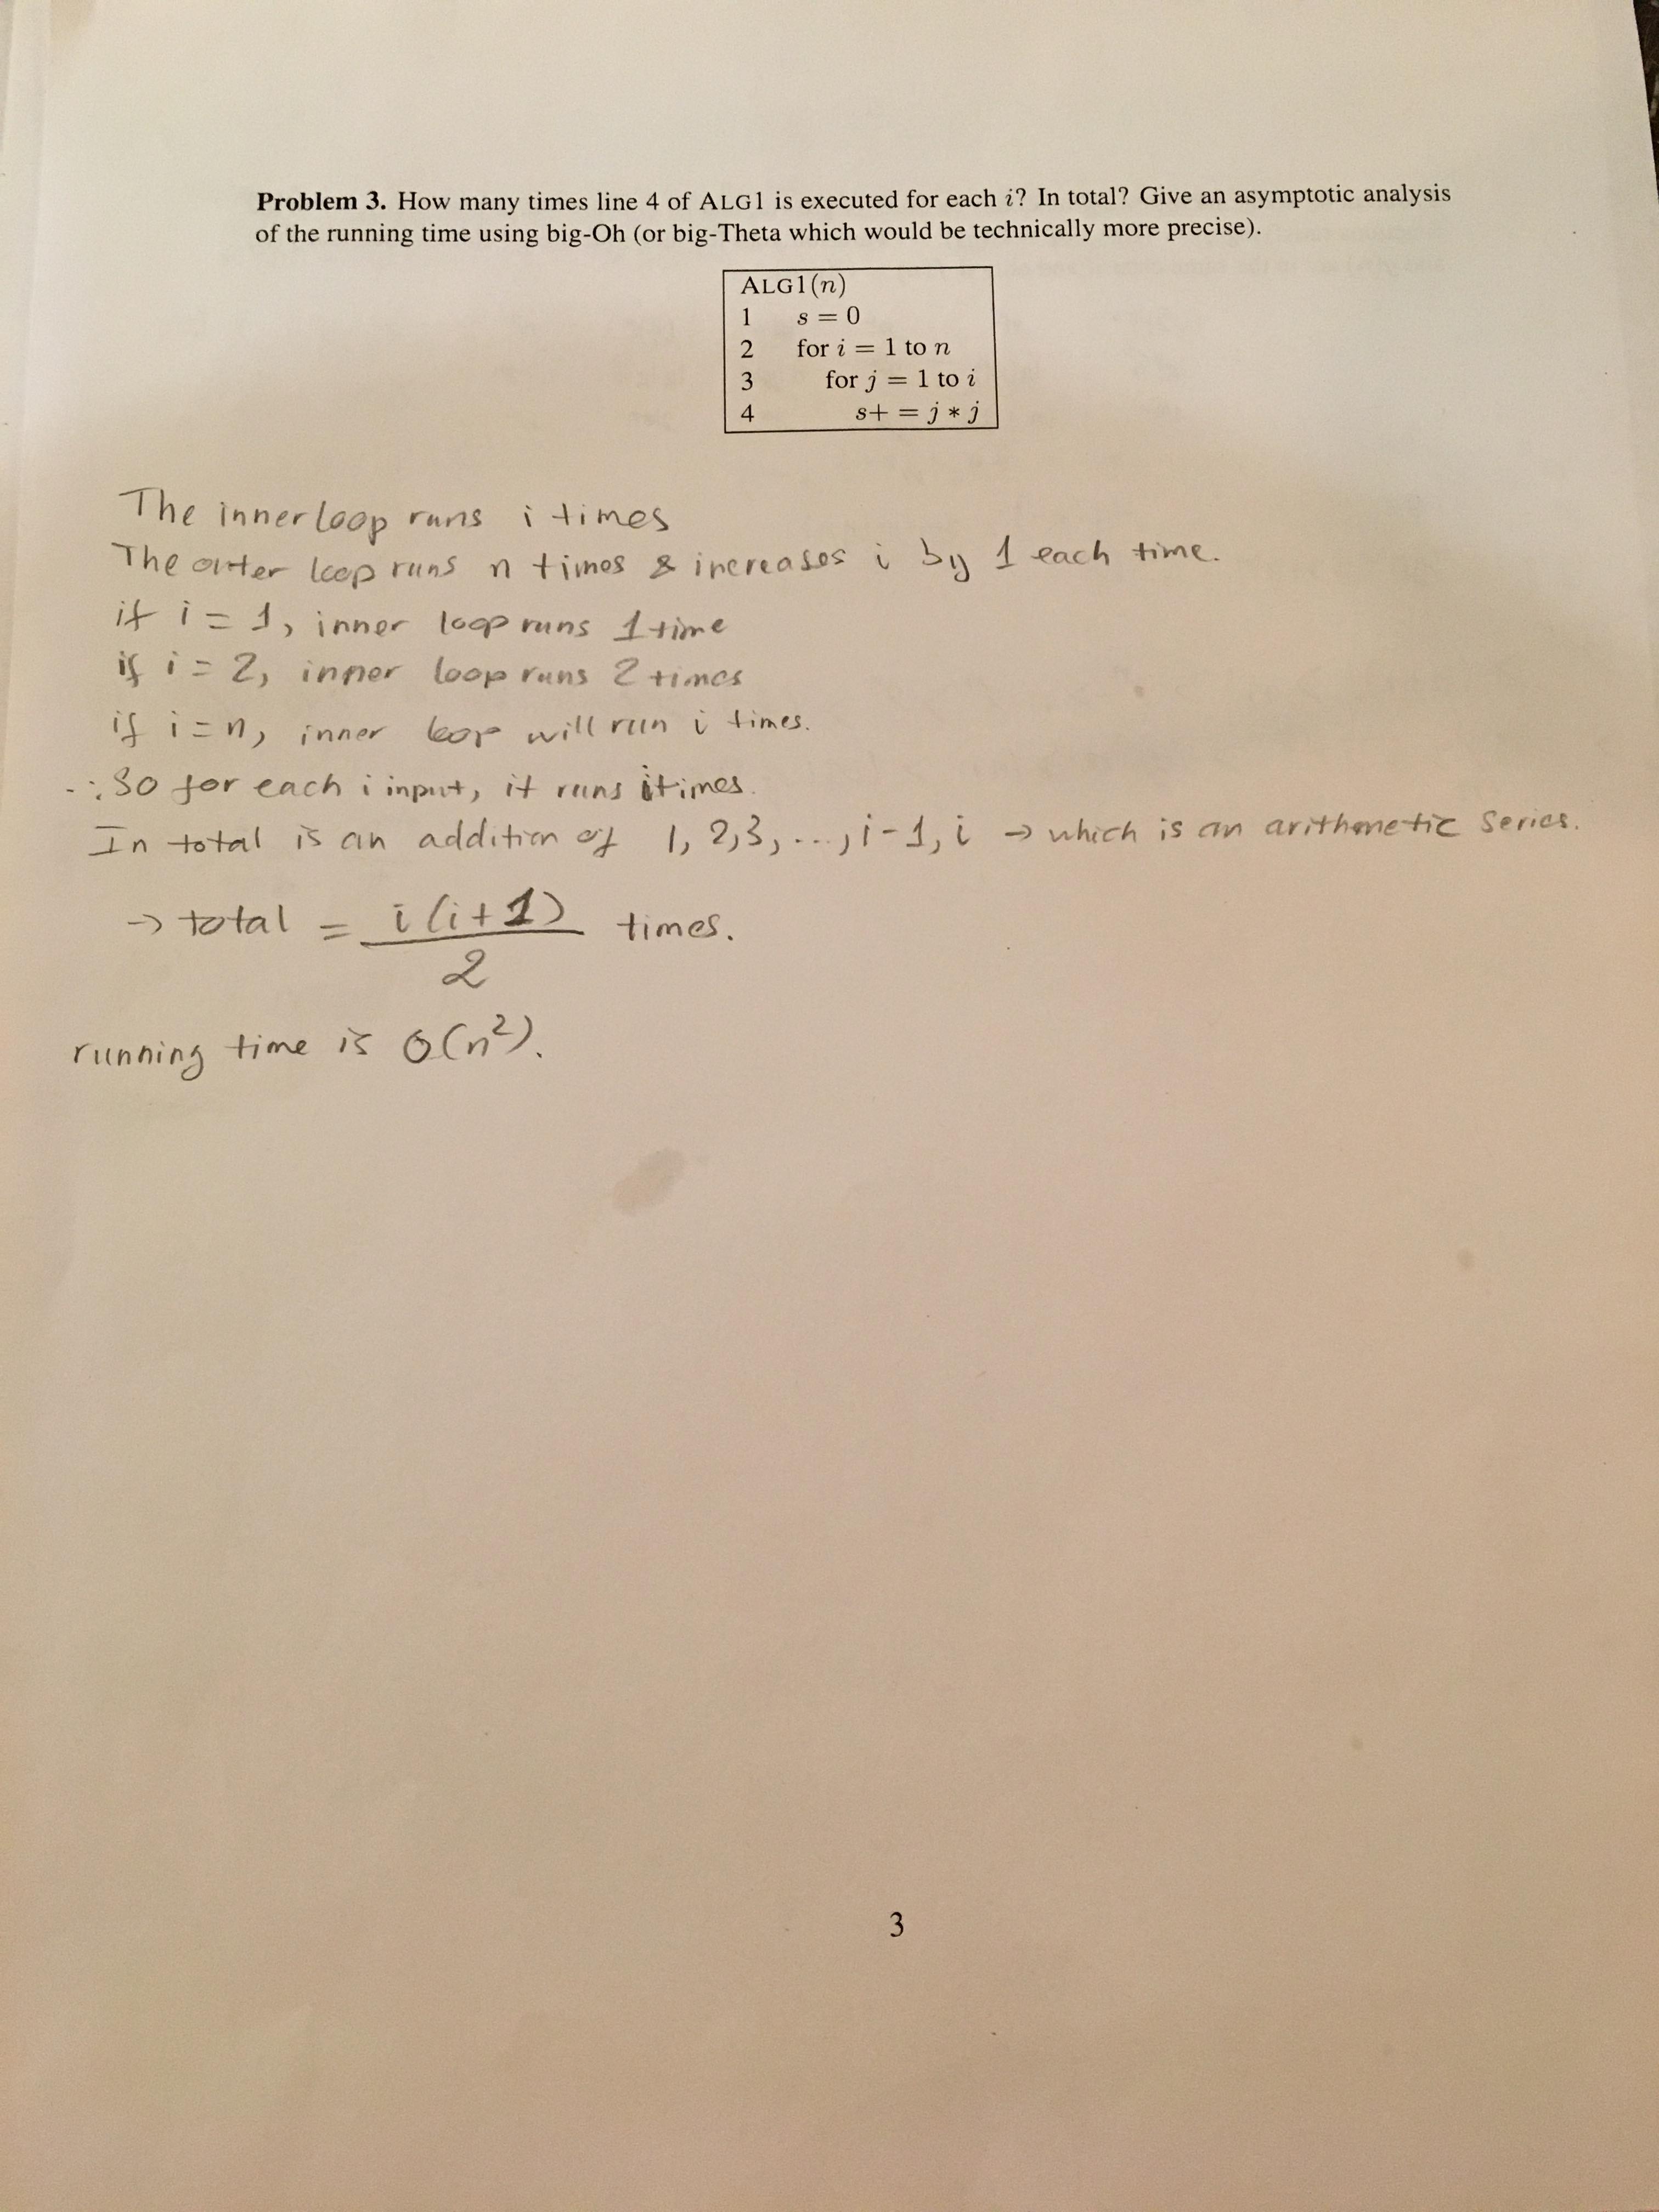 Problem 3. How many times line 4 of ALG1 is executed for each i? In total? Give an asymptotic analysis
of the running time using big-Oh (or big-Theta which would be technically more precise).
ALG1(n)
1 s = 0
2 for i = 1 to n
3 for j = 1 to i
4 s+ = j * j
The inner loop runs i times
The outer loop runs n times & increases i by 1 each time.
if i = 1, inner loop runs 1 time
if i = 2, inner loop runs 2 times
if i = n, inner loop will run i times.
∴ So for each i input, it runs i times.
In total is an addition of 1, 2, 3, ..., i-1, i → which is an arithmetic series.
→ total = i(i+1)/2 times.
running time is O(n²).
3